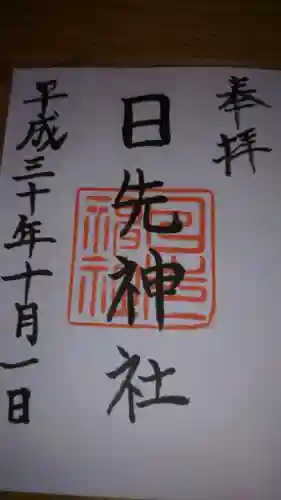 奉拝
日先神社
平成三十年十月一日